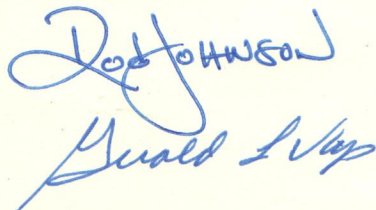 Rod Johnson
Gerald L Vap